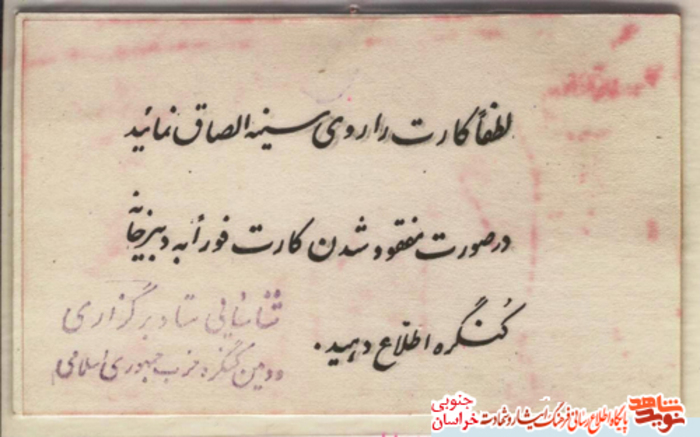 لطفاً کارت را روی سینه الصاق نمائید
در صورت مفقود شدن کارت فوراً به دبیرخانه
کنگره اطلاع دهید.
شناسائی ستاد برگزاری
دومین کنگره حزب جمهوری اسلامی
نوید شاهد
پایگاه اطلاع رسانی فرهنگ ایثار و شهادت
خراسان جنوبی